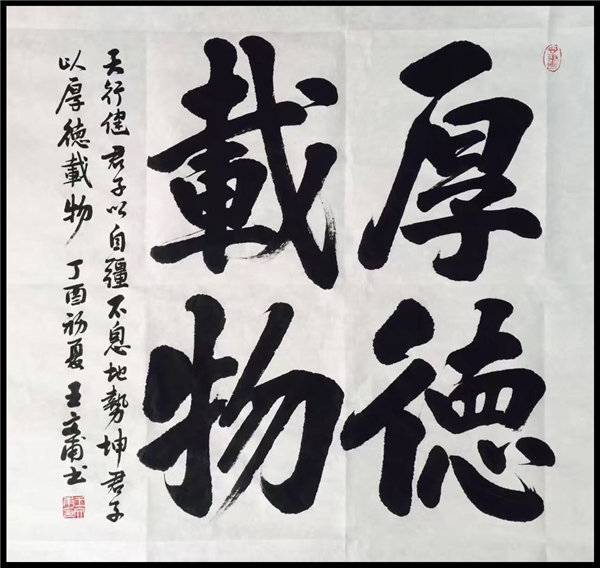 厚德
載物
天行健君子以自疆不息地勢坤君子
以厚德載物 丁酉初夏 王文甫书